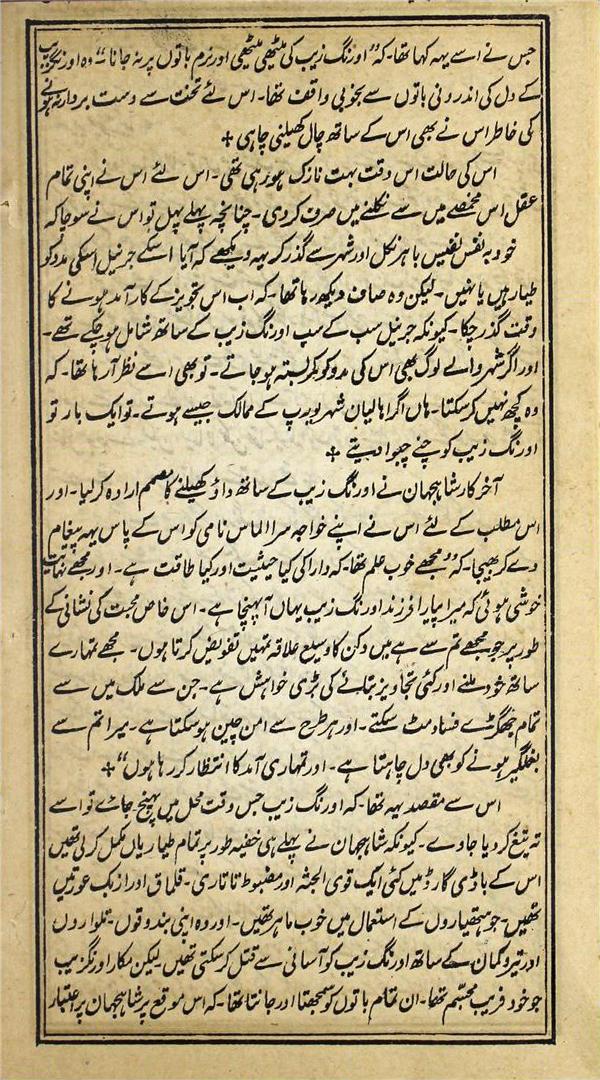 جس نے اسے یہہ کہا تھا۔ کہ ”اورنگ زیب کی میٹھی میٹھی اور نرم باتوں پر نہ جانا“ وہ اورنگزیب
کے دل کی اندرونی باتوں سے بخوبی واقف تھا۔ اس لئے تخت سے دست بردار نہ ہونے
کی خاطر اس نے بھی اس کے ساتھ چال کھیلنی چاہی +
اس کی حالت اس وقت بہت نازک ہو رہی تھی۔ اس لئے اس نے اپنی تمام
عقل اس مخمصے میں سے نکلنے میں صرف کر دی۔ چنانچہ پہلے پہل تو اس نے سوچا کہ
خود بہ نفس نفیس باہر نکل اور شہر سے گذر کر یہہ دیکھے کہ آیا اسکے جرنیل اسکی مدد کو
طیار ہیں یا نہیں۔ لیکن وہ صاف دیکھ رہا تھا۔ کہ اب اس تجویز کے کارآمد ہونے کا
وقت گذر چکا۔ کیونکہ جرنیل سب کے سب اورنگ زیب کے ساتھ شامل ہو چکے تھے۔
اور اگر شہر والے لوگ بھی اس کی مدد کو کمر بستہ ہو جاتے۔ تو بھی اسے نظر آ رہا تھا۔ کہ
وہ کچھ نہیں کر سکتا۔ ہاں اگر اہالیان شہر یورپ کے ممالک جیسے ہوتے۔ تو ایک بار تو
اورنگ زیب کو چنے چبوا دیتے +
آخر کار شاہجہان نے اورنگ زیب کے ساتھ داؤ کھیلنے کا مصمم ارادہ کر لیا۔ اور
اس مطلب کے لئے اس نے اپنے خواجہ سرا الماس نامی کو اس کے پاس یہہ پیغام
دے کر بھیجا۔ کہ ”مجھے خوب علم تھا۔ کہ دارا کی کیا حیثیت اور کیا طاقت ہے۔ اور مجھے نہایت
خوشی ہوئی کہ میرا پیارا فرزند اورنگ زیب یہاں آ پہنچا ہے۔ اس خاص محبت کی نشانی کے
طور پر جو مجھے تم سے ہے میں دکن کا وسیع علاقہ تمہیں تفویض کرتا ہوں۔ مجھے تمہارے
ساتھ خود ملنے اور کئی تجاویز بتانے کی بڑی خواہش ہے۔ جن سے ملک میں سے
تمام جھگڑے فساد مٹ سکتے۔ اور ہر طرح سے امن چین ہو سکتا ہے۔ میرا تم سے
بغلگیر ہونے کو بھی دل چاہتا ہے۔ اور تمہاری آمد کا انتظار کر رہا ہوں“ +
اس سے مقصد یہہ تھا۔ کہ اورنگ زیب جس وقت محل میں پہنچ جائے تو اسے
تہ تیغ کر دیا جاوے۔ کیونکہ شاہجہان نے پہلے ہی خفیہ طور پر تمام طیاریاں مکمل کر لی تھیں
اس کے باڈی گارڈ میں کئی ایک قوی الجثہ اور مضبوط تاتاری۔ قلماق اور ازبک عورتیں
تھیں۔ جو ہتھیاروں کے استعمال میں خوب ماہر تھیں۔ اور وہ اپنی بندوقوں۔ تلواروں
اور تیروکمان کے ساتھ اورنگ زیب کو آسانی سے قتل کر سکتی تھیں۔ لیکن مکار اورنگزیب
جو خود فریب مجسم تھا۔ ان تمام باتوں کو سمجھتا اور جانتا تھا۔ کہ اس موقع پر شاہجہان پر اعتبار